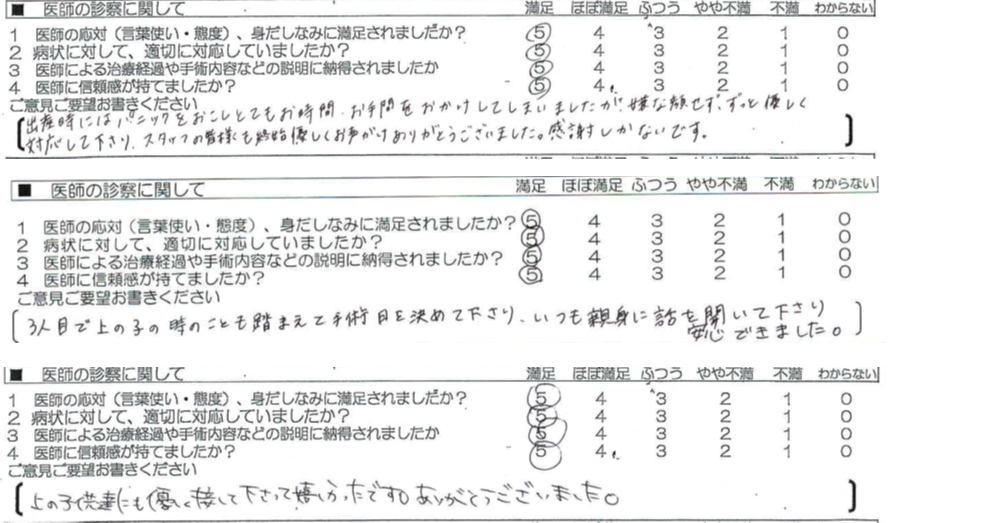 ■ 医師の診察に関して 満足 ほぼ満足 ふつう やや不満 不満 わからない
1 医師の応対（言葉使い・態度）、身だしなみに満足されましたか？ 5 4 3 2 1 0
2 病状に対して、適切に対応していましたか？ 5 4 3 2 1 0
3 医師による治療経過や手術内容などの説明に納得されましたか 5 4 3 2 1 0
4 医師に信頼感が持てましたか？ 5 4 3 2 1 0
ご意見ご要望お書きください
出産時にはパニックをおこしとてもお時間、お手間をおかけしてしまいましたが嫌な顔せず、ずっと優しく
対応して下さり、スタッフの皆様も終始優しくお声がけありがとうございました。感謝しかないです。
■ 医師の診察に関して 満足 ほぼ満足 ふつう やや不満 不満 わからない
1 医師の応対（言葉使い・態度）、身だしなみに満足されましたか？ 5 4 3 2 1 0
2 病状に対して、適切に対応していましたか？ 5 4 3 2 1 0
3 医師による治療経過や手術内容などの説明に納得されましたか？ 5 4 3 2 1 0
4 医師に信頼感が持てましたか？ 5 4 3 2 1 0
ご意見ご要望お書きください
3人目で上の子の時のことも踏まえて手術日を決めて下さり、いつも親身に話を聞いて下さり
安心できました。
■ 医師の診察に関して 満足 ほぼ満足 ふつう やや不満 不満 わからない
1 医師の応対（言葉使い・態度）、身だしなみに満足されましたか？ 5 4 3 2 1 0
2 病状に対して、適切に対応していましたか？ 5 4 3 2 1 0
3 医師による治療経過や手術内容などの説明に納得されましたか 5 4 3 2 1 0
4 医師に信頼感が持てましたか？ 5 4 3 2 1 0
ご意見ご要望お書きください
上の子供達にも優しく接して下さって嬉しかったです。ありがとうございました。